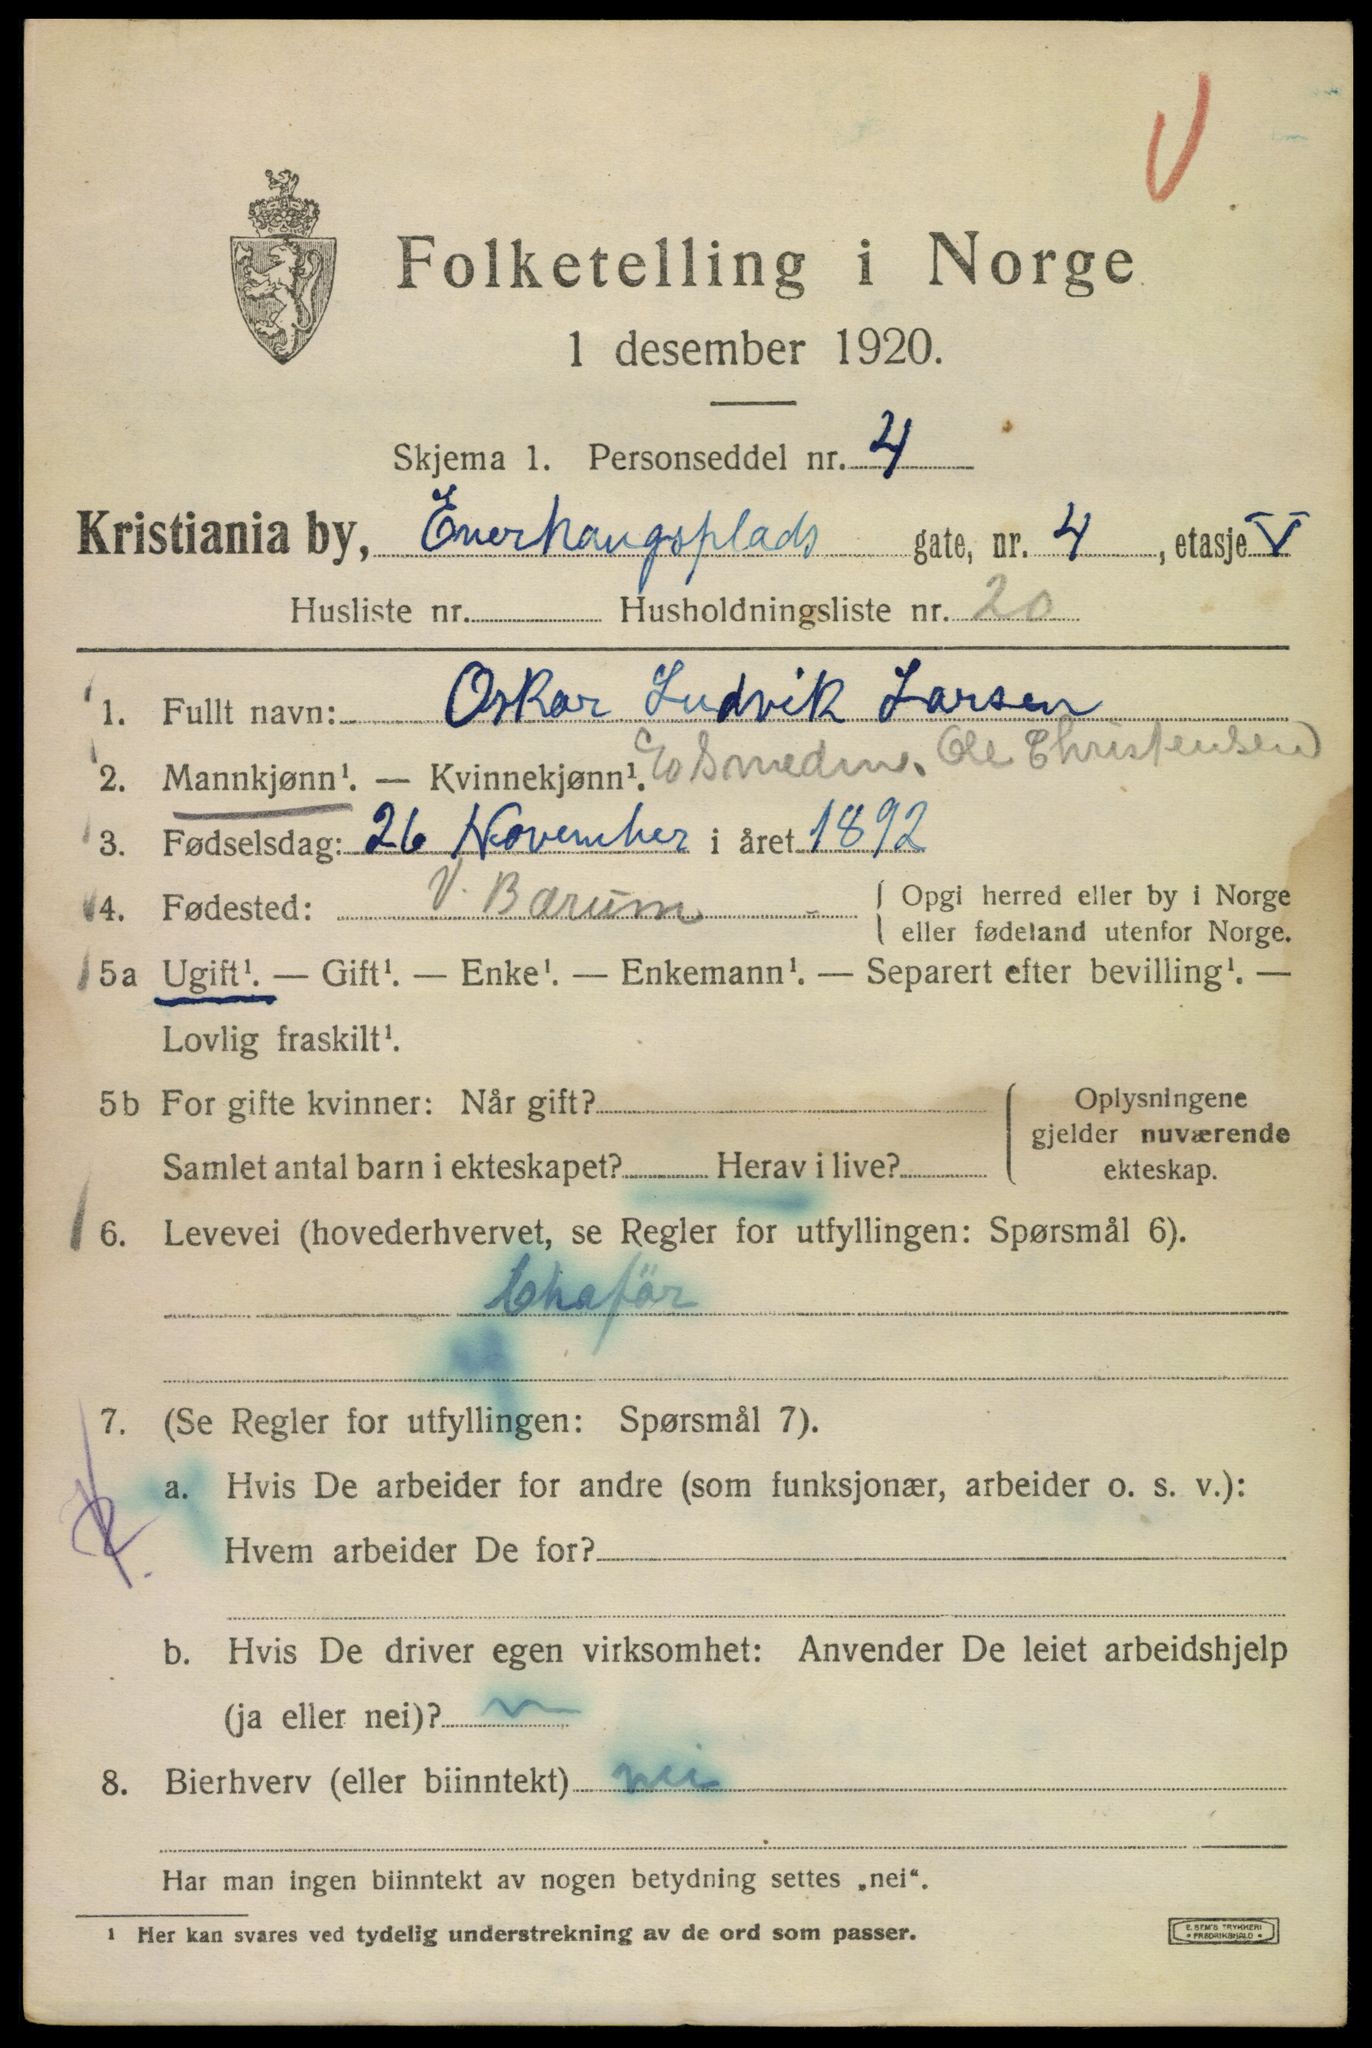 Folketelling i Norge
1 desember 1920.
Skjema 1. Personseddel nr. 4
Kristiania by, Enerhaugsplads gate, nr. 4, etasje V
Husliste nr. Husholdningsliste nr. 20
1. Fullt navn: Oskar Ludvik Larsen
2. Mannkjønn¹. — Kvinnekjønn¹. Ole Christensen
3. Fødselsdag: 26 November i året 1892
4. Fødested: V. Bærum { Opgi herred eller by i Norge
eller fødeland utenfor Norge.
5a Ugift¹. — Gift¹. — Enke¹. — Enkemann¹. — Separert efter bevilling¹. —
Lovlig fraskilt¹.
5b For gifte kvinner: Når gift? Oplysningene
gjelder nuværende
Samlet antal barn i ekteskapet? Herav i live? ekteskap.
6. Levevei (hovederhvervet, se Regler for utfyllingen: Spørsmål 6).
Chaför
7. (Se Regler for utfyllingen: Spørsmål 7).
a. Hvis De arbeider for andre (som funksjonær, arbeider o. s. v.):
Hvem arbeider De for?
b. Hvis De driver egen virksomhet: Anvender De leiet arbeidshjelp
(ja eller nei)?
8. Bierhverv (eller biinntekt) nei
Har man ingen biinntekt av nogen betydning settes „nei“.
¹ Her kan svares ved tydelig understrekning av de ord som passer.
E. SEM'S TRYKKERI
FREDRIKSHALD